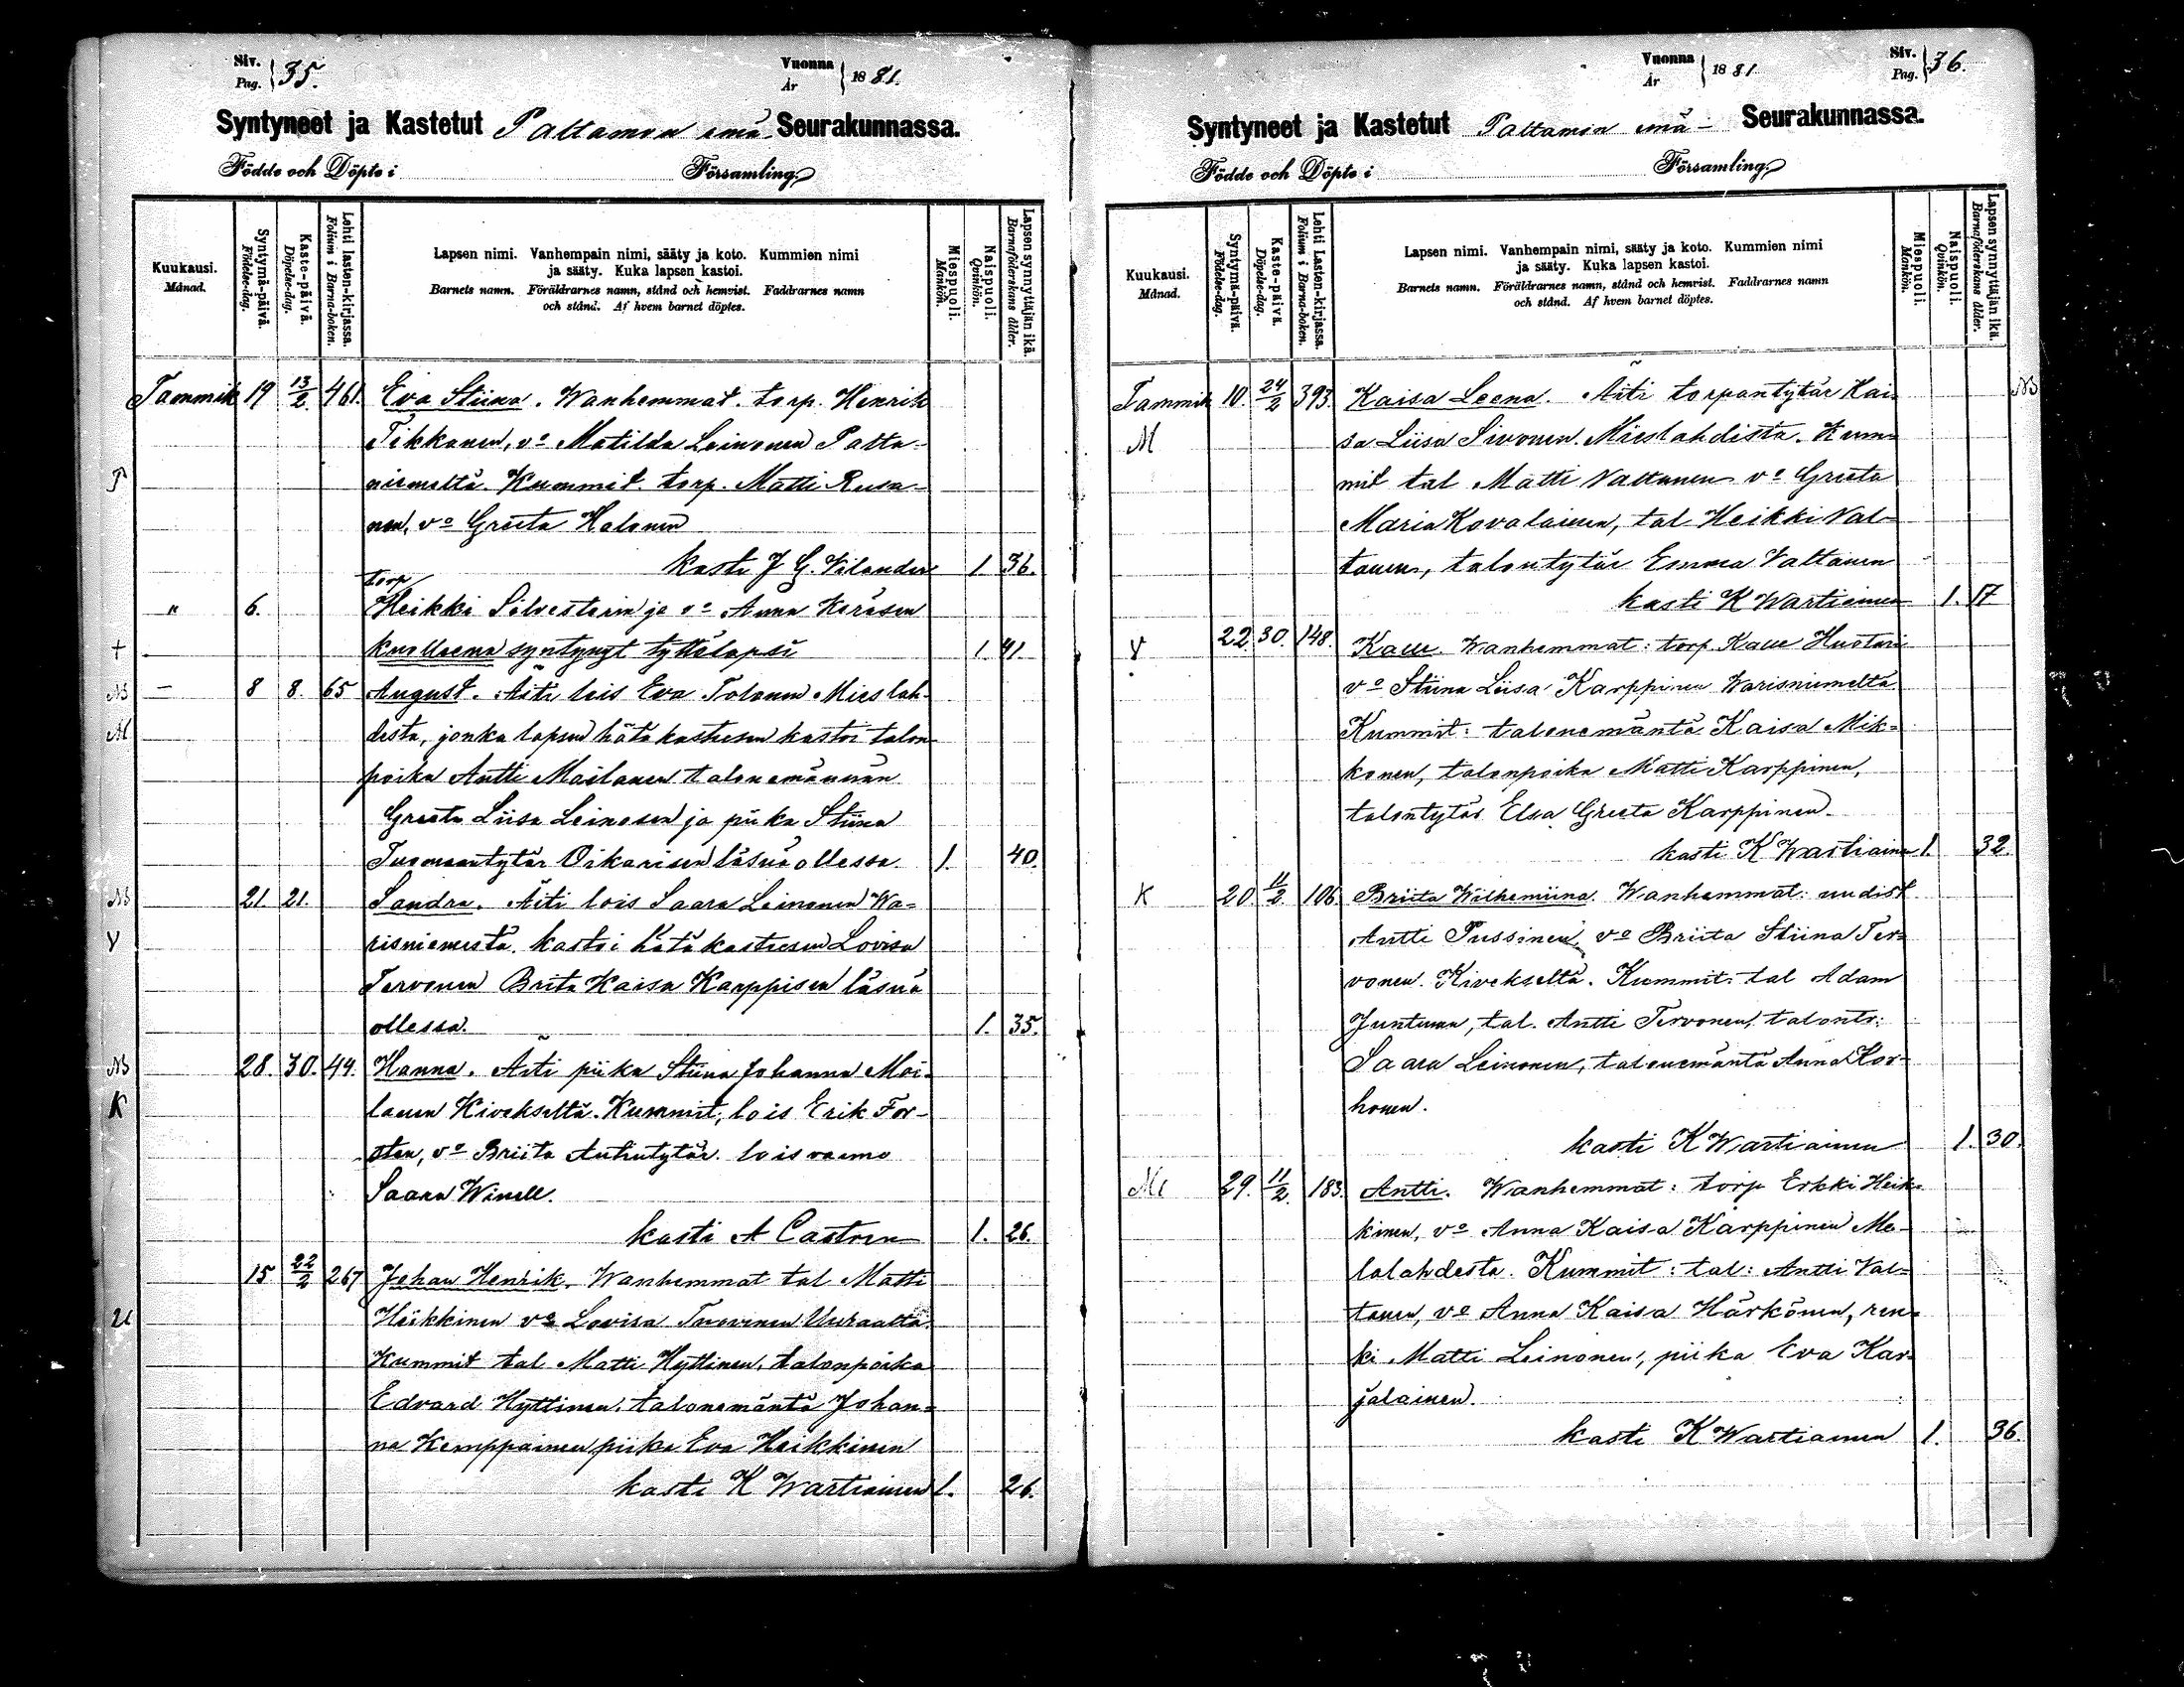 Siv. Pag. 35. Vuonna År 1881.
Syntyneet ja Kastetut Paltamon emä- Seurakunnassa.
Födde och Döpte i Församling.
Kuukausi. Månad.
Syntymä-päivä. Födelse-dag.
Kaste-päivä. Döpelse-dag.
Lehti lasten-kirjassa. Folium i Barna-boken.
Lapsen nimi. Vanhempain nimi, sääty ja koto. Kummien nimi
ja sääty. Kuka lapsen kastoi.
Barnets namn. Föräldrarnes namn, stånd och hemvist. Faddrarnes namn
och stånd. Af hvem barnet döptes.
Miespuoli. Mankön.
Naispuoli. Qvinkön.
Lapsen synnyttäjän ikä. Barnaföderskans ålder.
Tammik 19 13/2. 461. Eva Stiina. Wanhemmat. torp. Henrik
Tikkanen, vo Matilda Leinonen Palta-
P niemeltä. Kummit. torp. Matti Rusa-
nen, vo Greeta Halonen
kasti J G. Vilander 1 36.
torp
" 6. Heikki Silvesterin ja vo Anna Keräsen
+ kuolleena syntynyt tyttölapsi 1. 41.
NB — 8 8. 65 August. Äiti lois Eva Tolonen Mieslah-
M desta, jonka lapsen hätäkasteesen kastoi talon-
poika Antti Moilanen talonemännän
Greeta Liisa Leinosen ja piika Stiina
Tuomaantytär Oikarisen läsnä ollessa. 1. 40.
NB 21. 21. Sandra. Äiti lois Saara Leinonen Wa=
V risniemestä. kastoi hätäkasteesen Lovisa
Tervonen Brita Kaisa Karppisen läsnä
ollessa. 1. 35.
NB 28. 30. 44. Hanna. Äiti piika Stiina Johanna Moi-
K lanen Kivekseltä. Kummit; lois Erik For-
sten, vo Briita Antintytär. lois vaimo
Saara Winell.
kasti A Castren 1. 26.
15. 22/2 267 Johan Henrik. Wanhemmat tal Matti
U Heikkinen vo Lovisa Turvinen Uuraalta.
Kummit tal Matti Hyttinen, talonpoika
Edvard Hyttinen. talonemäntä Johan=
na Kemppainen piika Eva Heikkinen
kasti K Wartiainen 1. 26.
Vuonna År 1881. Siv. Pag. 36.
Syntyneet ja Kastetut Paltamon emä- Seurakunnassa.
Födde och Döpte i Församling.
Kuukausi. Månad.
Syntymä-päivä. Födelse-dag.
Kaste-päivä. Döpelse-dag.
Lehti Lasten-kirjassa. Folium i Barna-boken.
Lapsen nimi. Vanhempain nimi, sääty ja koto. Kummien nimi
ja sääty. Kuka lapsen kastoi.
Barnets namn. Föräldrarnes namn, stånd och hemvist. Faddrarnes namn
och stånd. Af hvem barnet döptes.
Miespuoli. Mankön.
Naispuoli. Qvinkön.
Lapsen synnyttäjän ikä. Barnaföderskans ålder.
Tammik 10. 24/2 393. Kaisa Leena. Äiti torpantytär Kai= NB
M sa Liisa Sivonen. Mieslahdista. Kum=
mit tal Matti Valtanen vo Greeta
Maria Kovalainen, tal Heikki Val-
tanen, talontytär Emma Valtanen
kasti K Wartiainen 1. 17
V 22 30. 148. Kalle. Wanhemmat: torp. Kalle Huotari
vo Stiina Liisa Karppinen Warisniemeltä
Kummit: talonemäntä Kaisa Mik=
konen, talonpoika Matti Karppinen,
talontytär Elsa Greeta Karppinen.
kasti K Wartiainen 1. 32.
K 20 11/2. 106. Briita Wilhemiina. Wanhemmat: uudist
Antti Pussinen, vo Briita Stiina Ter=
vonen. Kivekseltä. Kummit: tal Adam
Juntunen, tal. Antti Tervonen, talontr:
Saara Leinonen, talonemäntä Anna Kor-
honen.
kasti K Wartiainen 1. 30.
Me 29. 11/2. 183. Antti. Wanhemmat: torp Erkki Heik=
kinen, vo Anna Kaisa Karppinen Me-
lalahdesta. Kummit: tal: Antti Val=
tanen, vo Anna Kaisa Härkönen, ren=
ki Matti Leinonen, piika Eva Kar-
jalainen.
kasti K Wartiainen 1. 36.